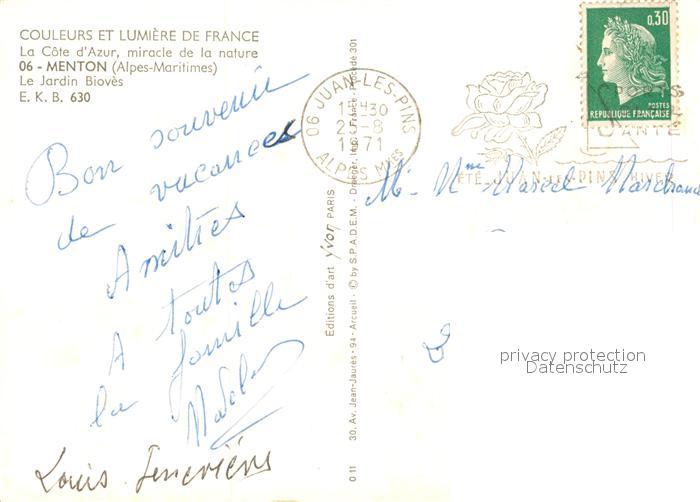 COULEURS ET LUMIÈRE DE FRANCE
La Côte d'Azur, miracle de la nature
06 - MENTON (Alpes-Maritimes)
Le Jardin Biovès
E. K. B. 630
Bon souvenir
de vacances
Amitiés
A toutes
la famille
Louis Geneviève
Editions d'art yvon PARIS
30, Av. Jean-Jaurès - 94 - Arcueil - © by S.P.A.D.E.M. - Draeger, Imp. - France - Procédé 301
0 11
06 JUAN-LES-PINS
ALPES Mmes
1971
ÉTÉ JUAN-LES-PINS HIVER
0,30
POSTES
REPUBLIQUE FRANÇAISE
M. Mme Marcel Marchand
privacy protection
Datenschutz